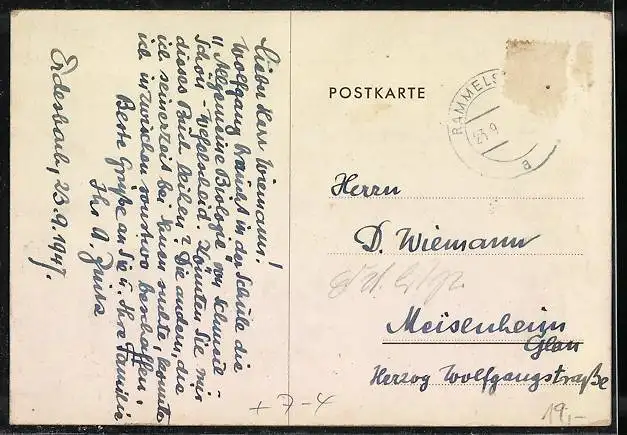 Erdesbach, 23.9.1947.
Lieber Herr Wiemann!
Wolfgang braucht in der Schule die
"Allgemeine Biologie" von Schmeil
Könnten Sie mir
dieses Buch leihen? Die andern, die
ich seinerzeit bei Ihnen suchte, konnte
ich inzwischen sonstwo beschaffen.
Beste Grüße an Sie u. Ihre Familie
Ihr A.
POSTKARTE
RAMMELS
23.9
a
Herrn
D. Wiemann
Meisenheim
Glan
Herzog Wolfgangstraße
+ 7-4
19,-